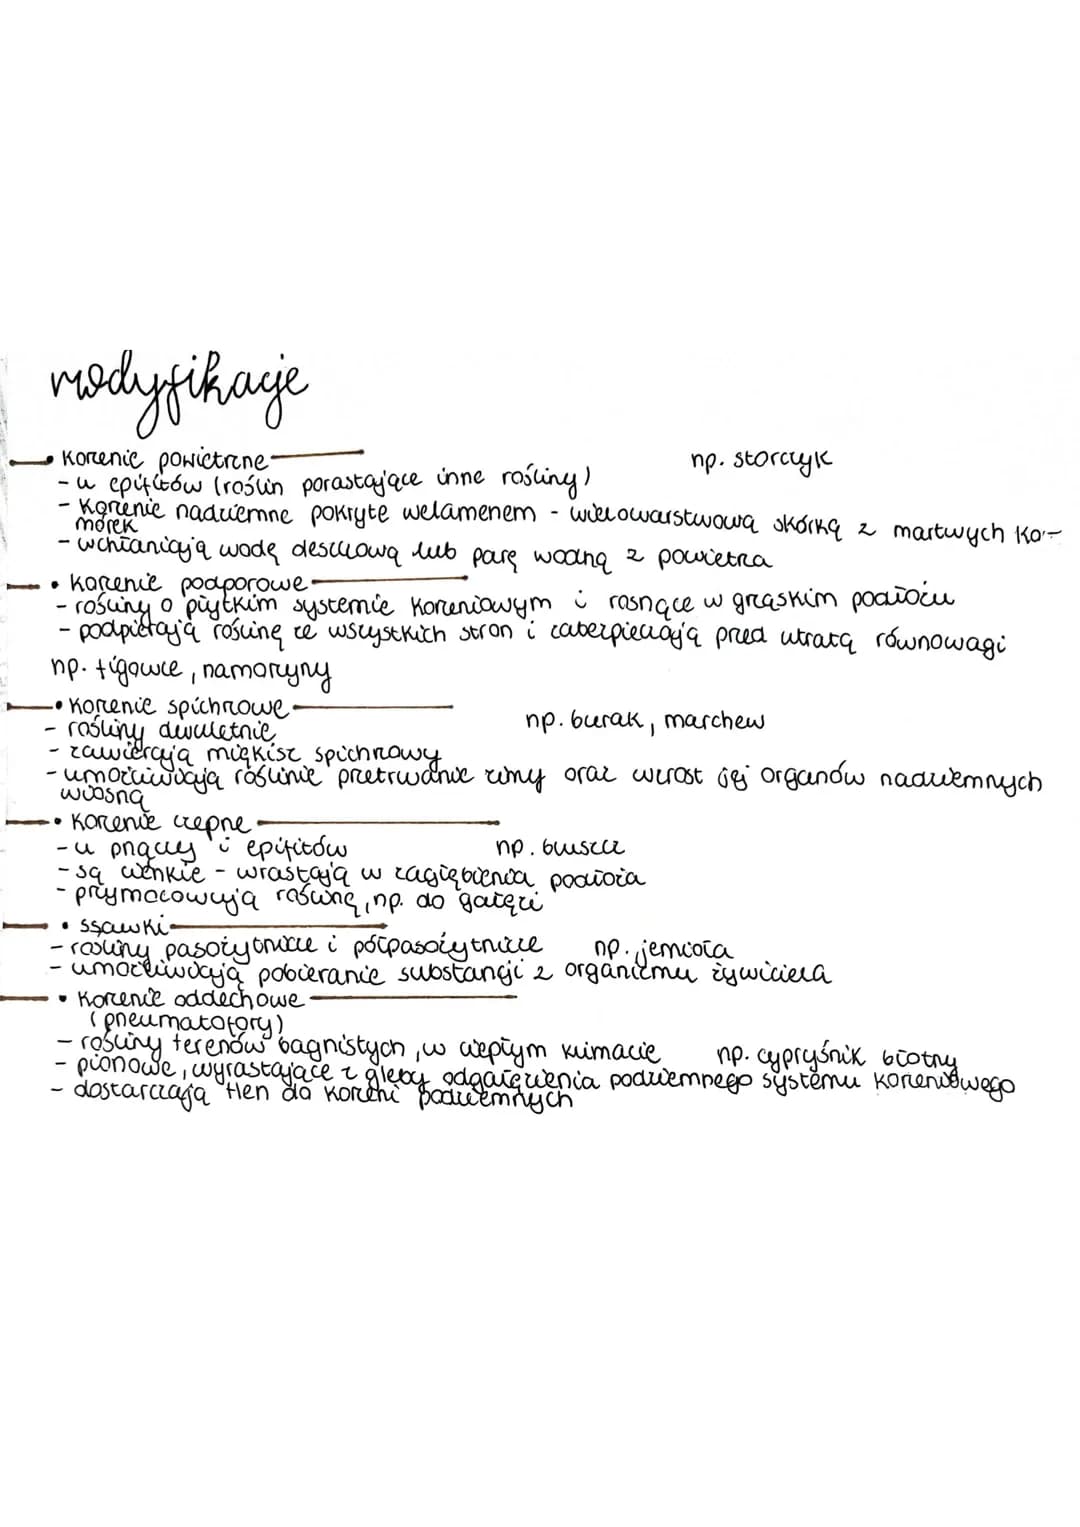 modyfikacje
• korzenie powietrzne np. storczyk
- u epifitów (roślin porastające inne rośliny)
- korzenie nadziemne pokryte welamenem - wielowarstwową skórką z martwych ko-
mórek
- wchłaniają wodę deszczową lub parę wodną z powietrza
• korzenie podporowe
- rośliny o płytkim systemie korzeniowym i rosnące w grząskim podłożu
- podpierają roślinę ze wszystkich stron i zabezpieczają przed utratą równowagi
np. figowce, namorzyny
• korzenie spichrzowe np. burak, marchew
- rośliny dwuletnie
- zawierają miękisz spichrzowy
- umożliwiają roślinie przetrwanie zimy oraz wzrost jej organów nadziemnych
wiosną
• korzenie czepne
- u pnączy i epifitów np. bluszcz
- są cienkie - wrastają w zagłębienia podłoża
- przymocowują roślinę, np. do gałęzi
• ssawki
- rośliny pasożytnicze i półpasożytnicze np. jemioła
- umożliwiają pobieranie substancji z organizmu żywiciela
• korzenie oddechowe
(pneumatofory)
- rośliny terenów bagnistych, w ciepłym klimacie np. cypryśnik błotny
- pionowe, wyrastające z gleby odgałęzienia podziemnego systemu korzeniowego
- dostarczają tlen do korzeni podziemnych